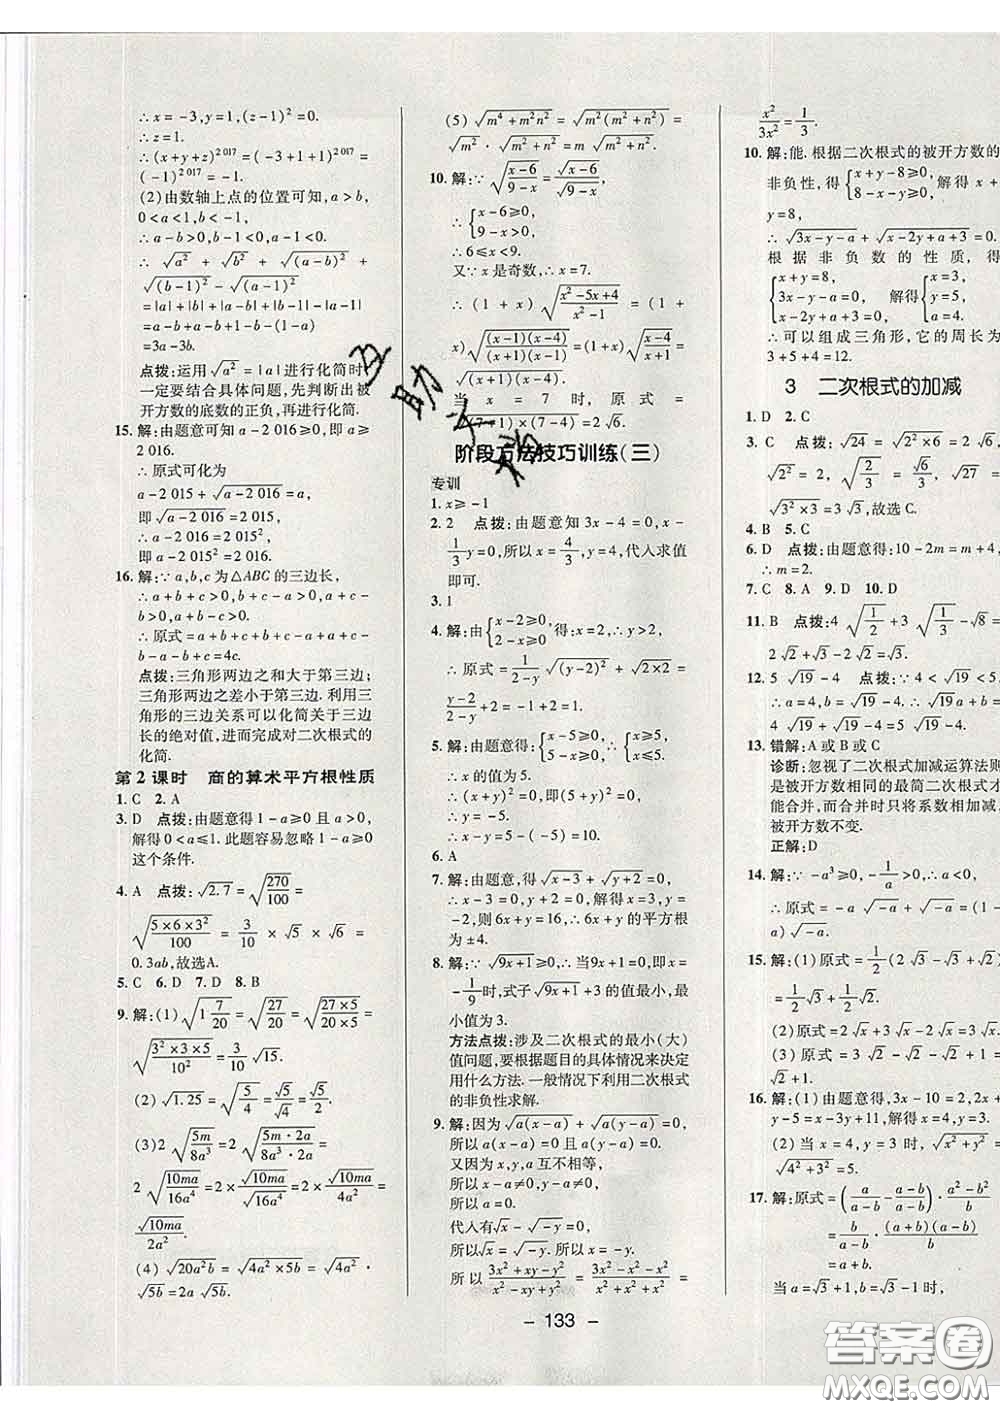 ∴x=-3,y=1,(z-1)²=0.
∴z=1.
∴(x+y+z)^{2 017}=(-3+1+1)^{2 017}=
(-1)^{2 017}=-1.
(2)由数轴上点的位置可知,a>b,
0<a<1,b<-1.
∴a-b>0,b-1<0,a-1<0.
∴√(a²)+√(b²)+√((a-b)²)-
√((b-1)²)-√((a-1)²)
=|a|+|b|+|a-b|-|b-1|-|a-1|
=a-b+(a-b)-(1-b)-(1-a)
=3a-3b.
点拨:运用√(a²)=|a|进行化简时,
一定要结合具体问题,先判断出被
开方数的底数的正负,再进行化简.
15.解:由题意可知a-2 016≥0,即a≥
2 016.
∴原式可化为
a-2 015+√(a-2 016)=a,
即√(a-2 016)=2 015,
∴a-2 016=2 015²,
即a-2 015²=2 016.
16.解:∵a,b,c为△ABC的三边长,
∴a+b+c>0,b+c-a>0,c+a-b>0,
a+b-c>0.
∴原式=a+b+c+b+c-a+c+a-
b-a-b+c=4c.
点拨:三角形两边之和大于第三边;
三角形两边之差小于第三边. 利用三
角形的三边关系可以化简关于三边长
的绝对值,进而完成对二次根式的
化简.
第2课时 商的算术平方根性质
1.C 2.A
3.D 点拨:由题意得1-a≥0且a>0,
解得0<a≤1. 此题容易忽略1-a≥0
这个条件.
4.A 点拨:√2.7=√(270/100)=
√((5×6×3²)/100)=3/10×√5×√6=
0.3ab,故选A.
5.C 6.D 7.D 8.B
9.解:(1)√(1 7/20)=√(27/20)=√((27×5)/(20×5))=
√((3²×3×5)/10²)=3/10√15.
(2)√1.25=√(5/4)=√5/√4=√5/2.
(3)2√(5m/8a³)=2√((5m·2a)/(8a³·2a))=
2√(10ma/16a⁴)=2×√10ma/√16a⁴=2×√10ma/4a²=
√10ma/2a².
(4)√(20a²b)=√(4a²×5b)=√(4a²)×
√5b=2a√5b.
(5)√(m⁴+m²n²)=√(m²(m²+n²))=
√(m²)·√(m²+n²)=m√(m²+n²).
10.解:∵√((x-6)/(9-x))=√(x-6)/√(9-x),
∴{x-6≥0,
9-x>0,
∴6≤x<9.
又∵x是奇数,∴x=7.
∴(1+x)√((x²-5x+4)/(x²-1))=(1+
x)√(((x-1)(x-4))/((x+1)(x-1)))=(1+x)√((x-4)/(x+1))
=√((x+1)(x-4)).
当x=7时,原式=
√((7+1)×(7-4))=2√6.
阶段方法技巧训练(三)
专训
1.x≥-1
2.2 点拨:由题意知3x-4=0,x-
1/3y=0,所以x=4/3,y=4,代入求值
即可.
3.1
4.解:由{x-2≥0,
2-x≥0得:x=2,∴y>2,
∴原式=1/(2-y)√((y-2)²)+√(2×2)=
(y-2)/(2-y)+2=-1+2=1.
5.解:由题意得:{x-5≥0,
5-x≥0,∴{x≥5,
x≤5,
∴x=5.
∴√((x-5)²)+√((5-x)²)-y=5,
∴y=-5.
∴x-y=5-(-5)=10.
6.A
7.解:由题意,得√(x-3)+√(y+2)=0,
∴x-3=0,y+2=0,解得x=3,y=
-2,则6x+y=16,∴6x+y的平方根
为±4.
8.解:∵√(9x+1)≥0,∴当9x+1=0,即x=
-1/9时,式子√(9x+1)+3的值最小,最
小值为3.
方法点拨:涉及二次根式的最小(大)
值问题,要根据题目的具体情况来决定
用什么方法. 一般情况下利用二次根式
的非负性求解.
9.解:因为√(a(x-a))+√(a(y-a))=0,
所以a(x-a)=0且a(y-a)=0.
又因为x,y,a互不相等,
所以x-a≠0,y-a≠0,
所以a=0.
代入有√x-√(-y)=0,
所以√x=√(-y),所以x=-y.
所以(3x²+xy-y²)/(x²-xy+y²)=(3x²-x²-x²)/(x²+x²+x²)=
x²/3x²=1/3.
10.解:能. 根据二次根式的被开方数的
非负性,得{x+y-8≥0,
8-x-y≥0,解得x+
y=8,
∴√(3x-y-a)+√(x-2y+a+3)=0.
根据非负数的性质,得
{x+y=8,
3x-y-a=0,
x-2y+a+3=0,解得{x=3,
y=5,
a=4.
∴可以组成三角形,它的周长为
3+5+4=12.
3 二次根式的加减
1.D 2.C
3.C 点拨:√24=√(2²×6)=2√6,
√(2²)=2,√(2/3)=√6/3,
√(3²×3)=3√3,故选C.
4.B 5.C
6.D 点拨:由题意得:10-2m=m+4,
∴m=2.
7.C 8.A 9.D 10.D
11.B 点拨:4√(1/2)+3√(1/3)-√8=
2√2+√3-2√2=√3.
12.5√19-4 点拨:∵4<√19<5,
∴a=4,b=√19-4,
4√19+√19-4=5√19-4.
13.错解:A或B或C
诊断:忽视了二次根式加减运算法则
是被开方数相同的最简二次根式才
能合并,而合并时只将系数相加减,
被开方数不变.
正解:D
14.解:∵-a³≥0,-1/a>0,∴a<0,
∴原式=-a√(-a)+√(-a)=(1-
a)√(-a).
15.解:(1)原式=1/2(2√3-√3+√2)
=1/2√3+1/2√2.
(2)原式=2√x+3√x-2√x=3√x.
(3)原式=3√2-√2-√2+1=
√2+1.
16.解:(1)由题意得,3x-10=2,2x+
y-5=x-3y+11,解得x=4,y=3.
(2)当x=4,y=3时,√(x²+y²)=
√(4²+3²)=5.
17.解:原式=(a/(a-b)-(a-b)/(a-b))·(a²-b²)/b=
b/(a-b)·((a+b)(a-b))/b
=a+b.
当a=√3+1,b=√3-1时,
- 133 -
互助文档
答案圈
MXQE.COM